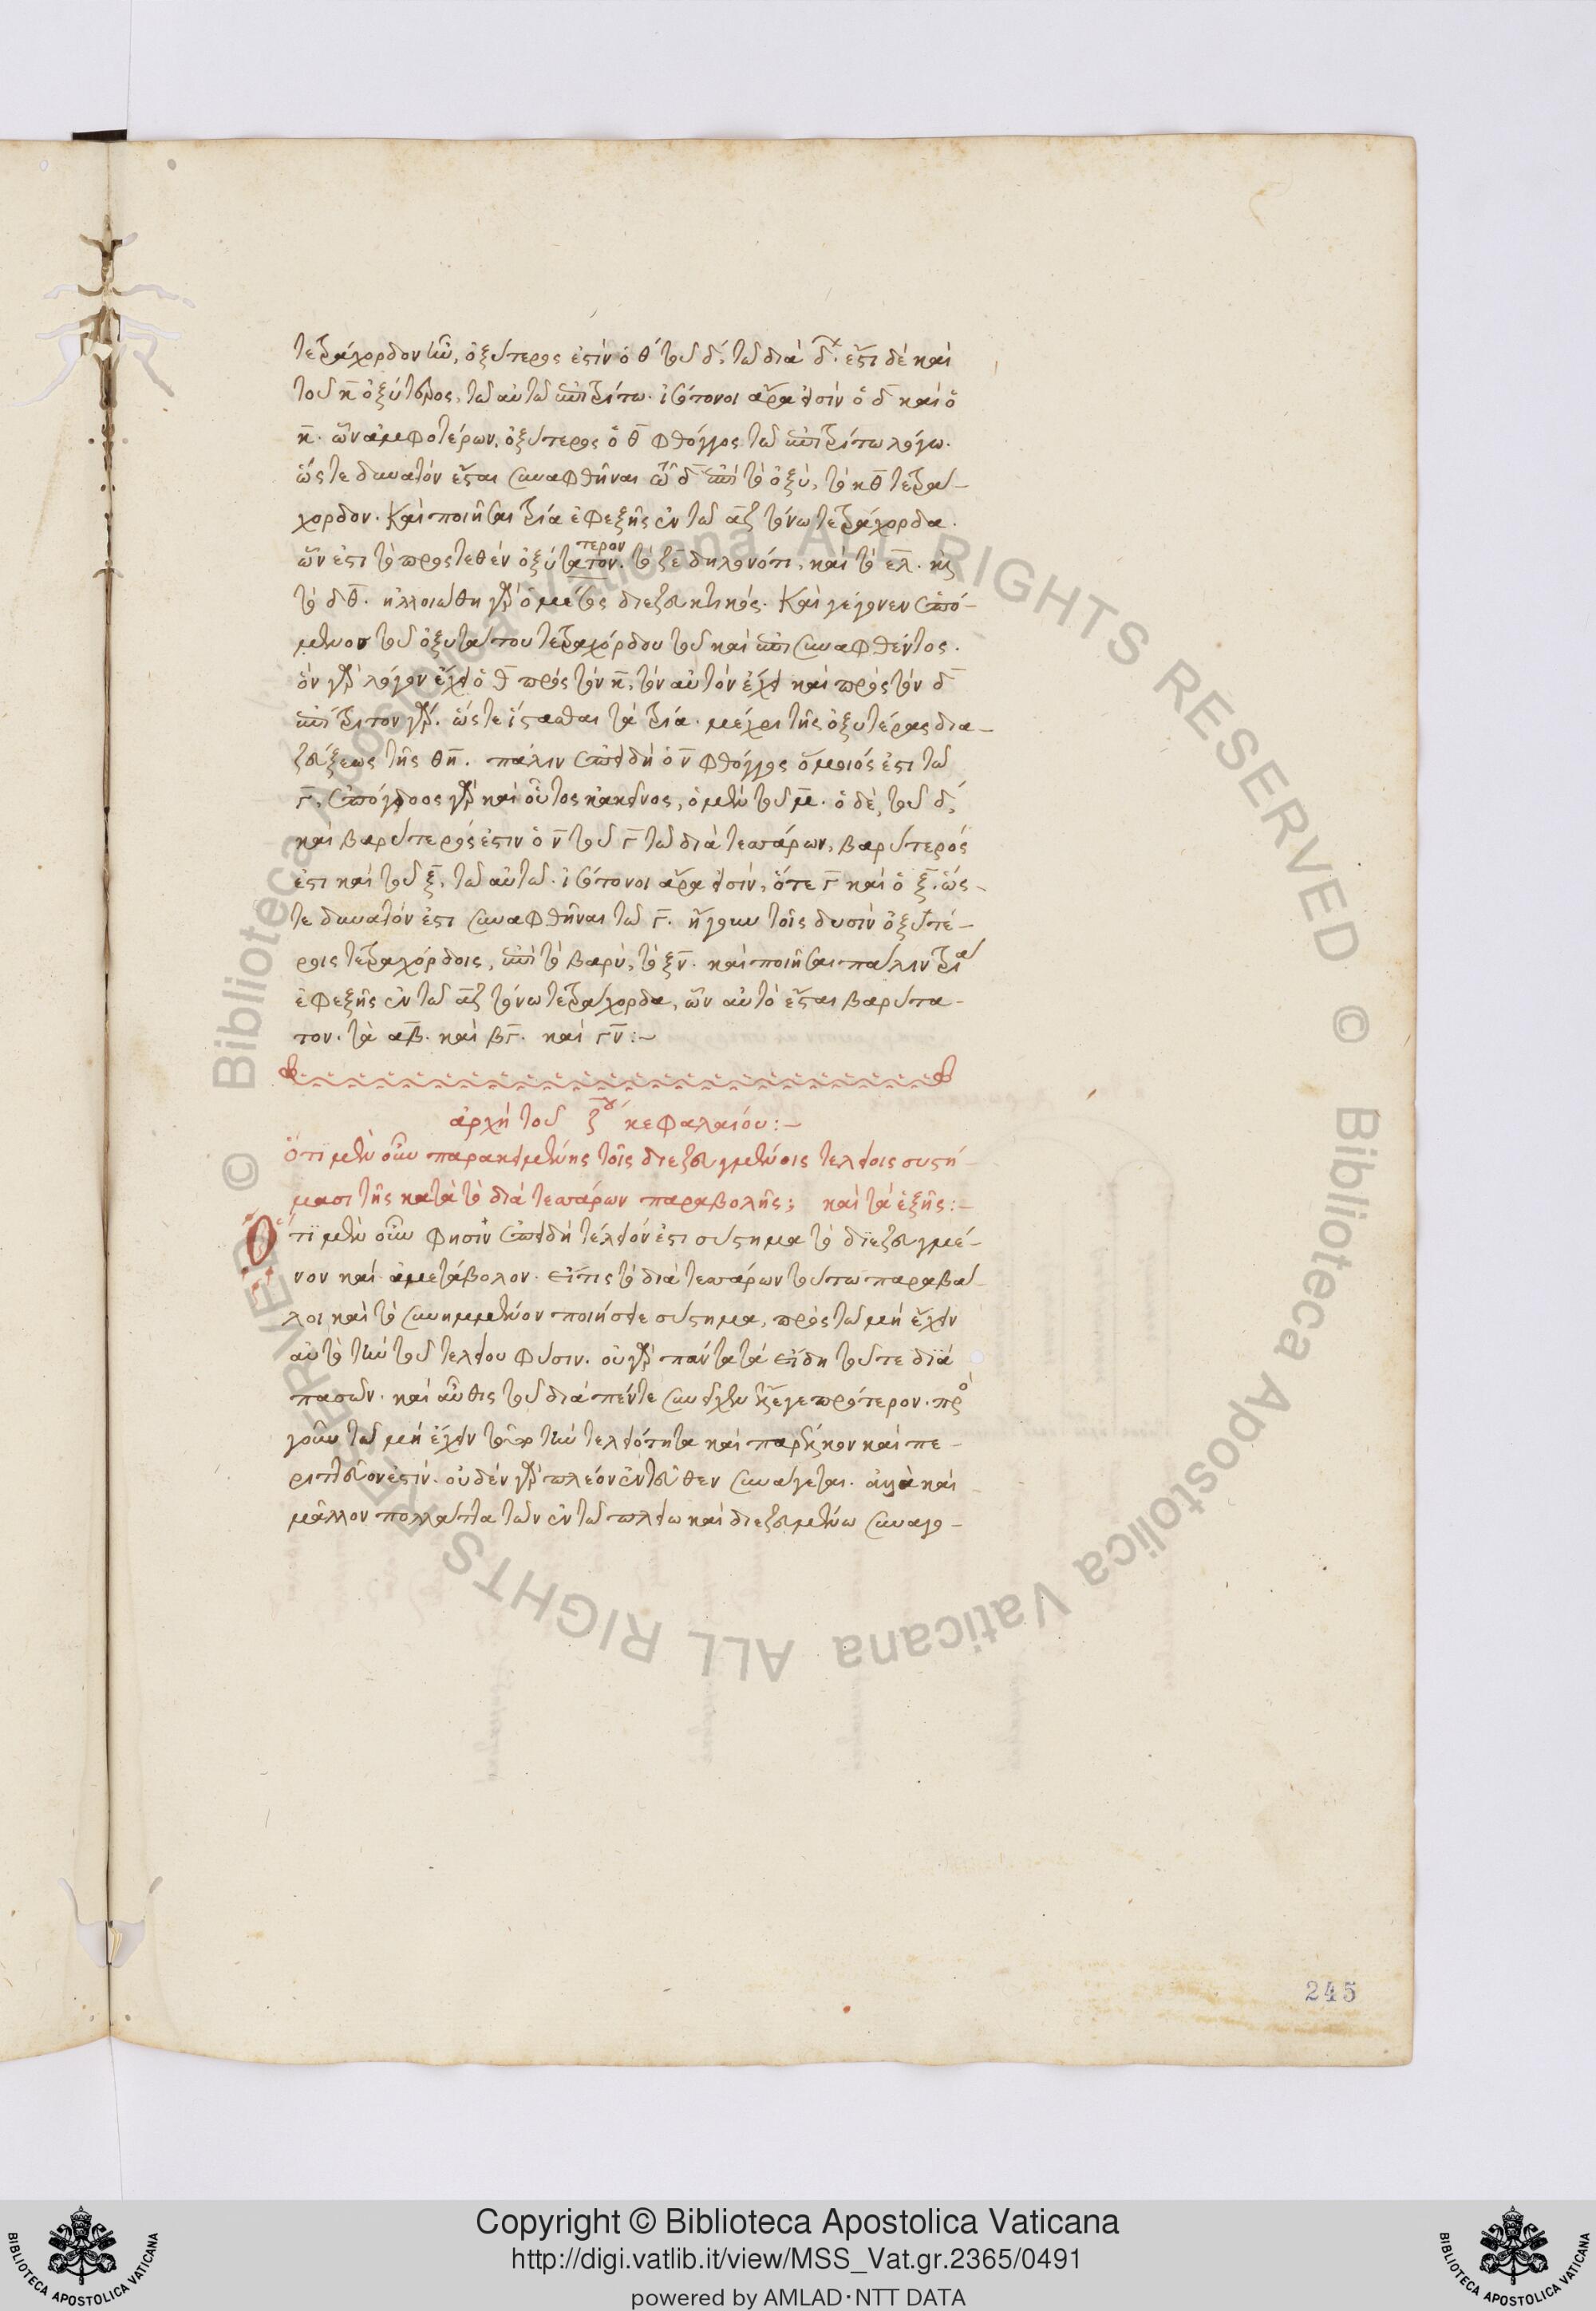 τετράχορδον ἦν, ὀξύτερος ἐστὶν ὁ θ τοῦ δ, τῶ διὰ δ. ἔστι δὲ καὶ
τοῦ κ ὀξύτερος, τῶ αὐτῶ ἐπιτρίτω. ἰσότονοι ἄρα εἰσὶν ὁ δ καὶ ὁ
κ. ὧν ἀμφοτέρων, ὀξύτερος ὁ θ φθόγγος τῶ ἐπιτρίτω λόγω.
ὥστε δυνατὸν ἔσται συναφθῆναι τῶ δ ἐπὶ τὸ ὀξὺ, τὸ κθ τετρά-
χορδον. Καὶ ποιῆσαι τρία ἐφεξῆς ἐν τῶ αζ τόνω τετράχορδα.
ὧν ἐστι τὸ προστεθὲν ὀξύτατον. τὸ ζε δηλονότι, καὶ τὸ ελ. καὶ
τερον
τὸ δθ. ἠλλοιώθη γὰρ ὁ μέσος διεζευκτικός. Καὶ γέγονεν ἑπό-
μενον τοῦ ὀξυτάτου τετραχόρδου τοῦ καὶ ἐπισυναφθέντος.
ὃν γὰρ λόγον ἔχει ὁ θ πρὸς τὸν κ, τὸν αὐτὸν ἔχει καὶ πρὸς τὸν δ
ἐπίτριτον γάρ. ὥστε ἵστασθαι τὰ τρία. μέχρι τῆς ὀξυτέρας δια-
ζεύξεως τῆς θη. πάλιν ἐπειδὴ ὁ ν φθόγγος ὅμοιός ἐστι τῶ
γ, ἐπόγδοος γὰρ καὶ οὗτος κἀκεῖνος, ὁ μὲν τοῦ μ. ὁ δὲ, τοῦ δ,
καὶ βαρύτερός ἐστιν ὁ ν τοῦ γ τῶ διὰ τεσσάρων, βαρύτερός
ἐστι καὶ τοῦ ξ, τῶ αὐτῶ. ἰσότονοι ἄρα εἰσὶν, ὅτε γ καὶ ὁ ξ. ὥς-
τε δυνατόν ἐστι συναφθῆναι τῶ γ. ἤγουν τοῖς δυσὶν ὀξυτέ-
ροις τετραχόρδοις, ἐπὶ τὸ βαρὺ, τὸ ξν. καὶ ποιῆσαι πάλιν τρία
ἐφεξῆς ἐν τῶ αζ τόνω τετράχορδα, ὧν αὐτὸ ἔσται βαρύτα-
τον. τὰ αβ. καὶ βγ. καὶ γν:~
ἀρχὴ τοῦ ζου κεφαλαίου:~
Ὅτι μὲν οὖν παρακειμένης τοῖς διεζευγμένοις τελείοις συστή-
μασι τῆς κατὰ τὸ διὰ τεσσάρων παραβολῆς; καὶ τὰ ἑξῆς:~
Ὅτι μὲν οὖν φησὶν ἐπειδὴ τέλειόν ἐστι σύστημα τὸ διεζευγμέ-
νον καὶ ἀμετάβολον. εἴτις τὸ διὰ τεσσάρων τούτω παραβά-
λοι καὶ τὸ συνημμένον ποιήσειε σύστημα, πρὸς τῶ μὴ ἔχειν
αὐτὸ τὴν τοῦ τελείου φύσιν. οὐ γὰρ πάντα τὰ εἴδη τοῦτε διὰ
πασῶν. καὶ αὖθις τοῦ διὰ πέντε συνέχειν ἔλεγε πρότερον. πρὸς
γοῦν τῶ μὴ ἔχειν τοῦτο τὴν τελειότητα καὶ παρέλκον καὶ πε-
ριττεῦον ἐστίν. οὐδὲν γὰρ πλέον ἐντεῦθεν συνάγεται. ἀλλὰ καὶ
μᾶλλον πολλαπλα τῶν ἐν τῶ τελείω καὶ διεζευγμένω συναγο-
245
© Biblioteca Apostolica Vaticana ALL RIGHTS RESERVED © Biblioteca Apostolica Vaticana ALL RIGHTS RESERVED
Copyright © Biblioteca Apostolica Vaticana
http://digi.vatlib.it/view/MSS_Vat.gr.2365/0491
powered by AMLAD·NTT DATA
BIBLIOTECA APOSTOLICA VATICANA
BIBLIOTECA APOSTOLICA VATICANA